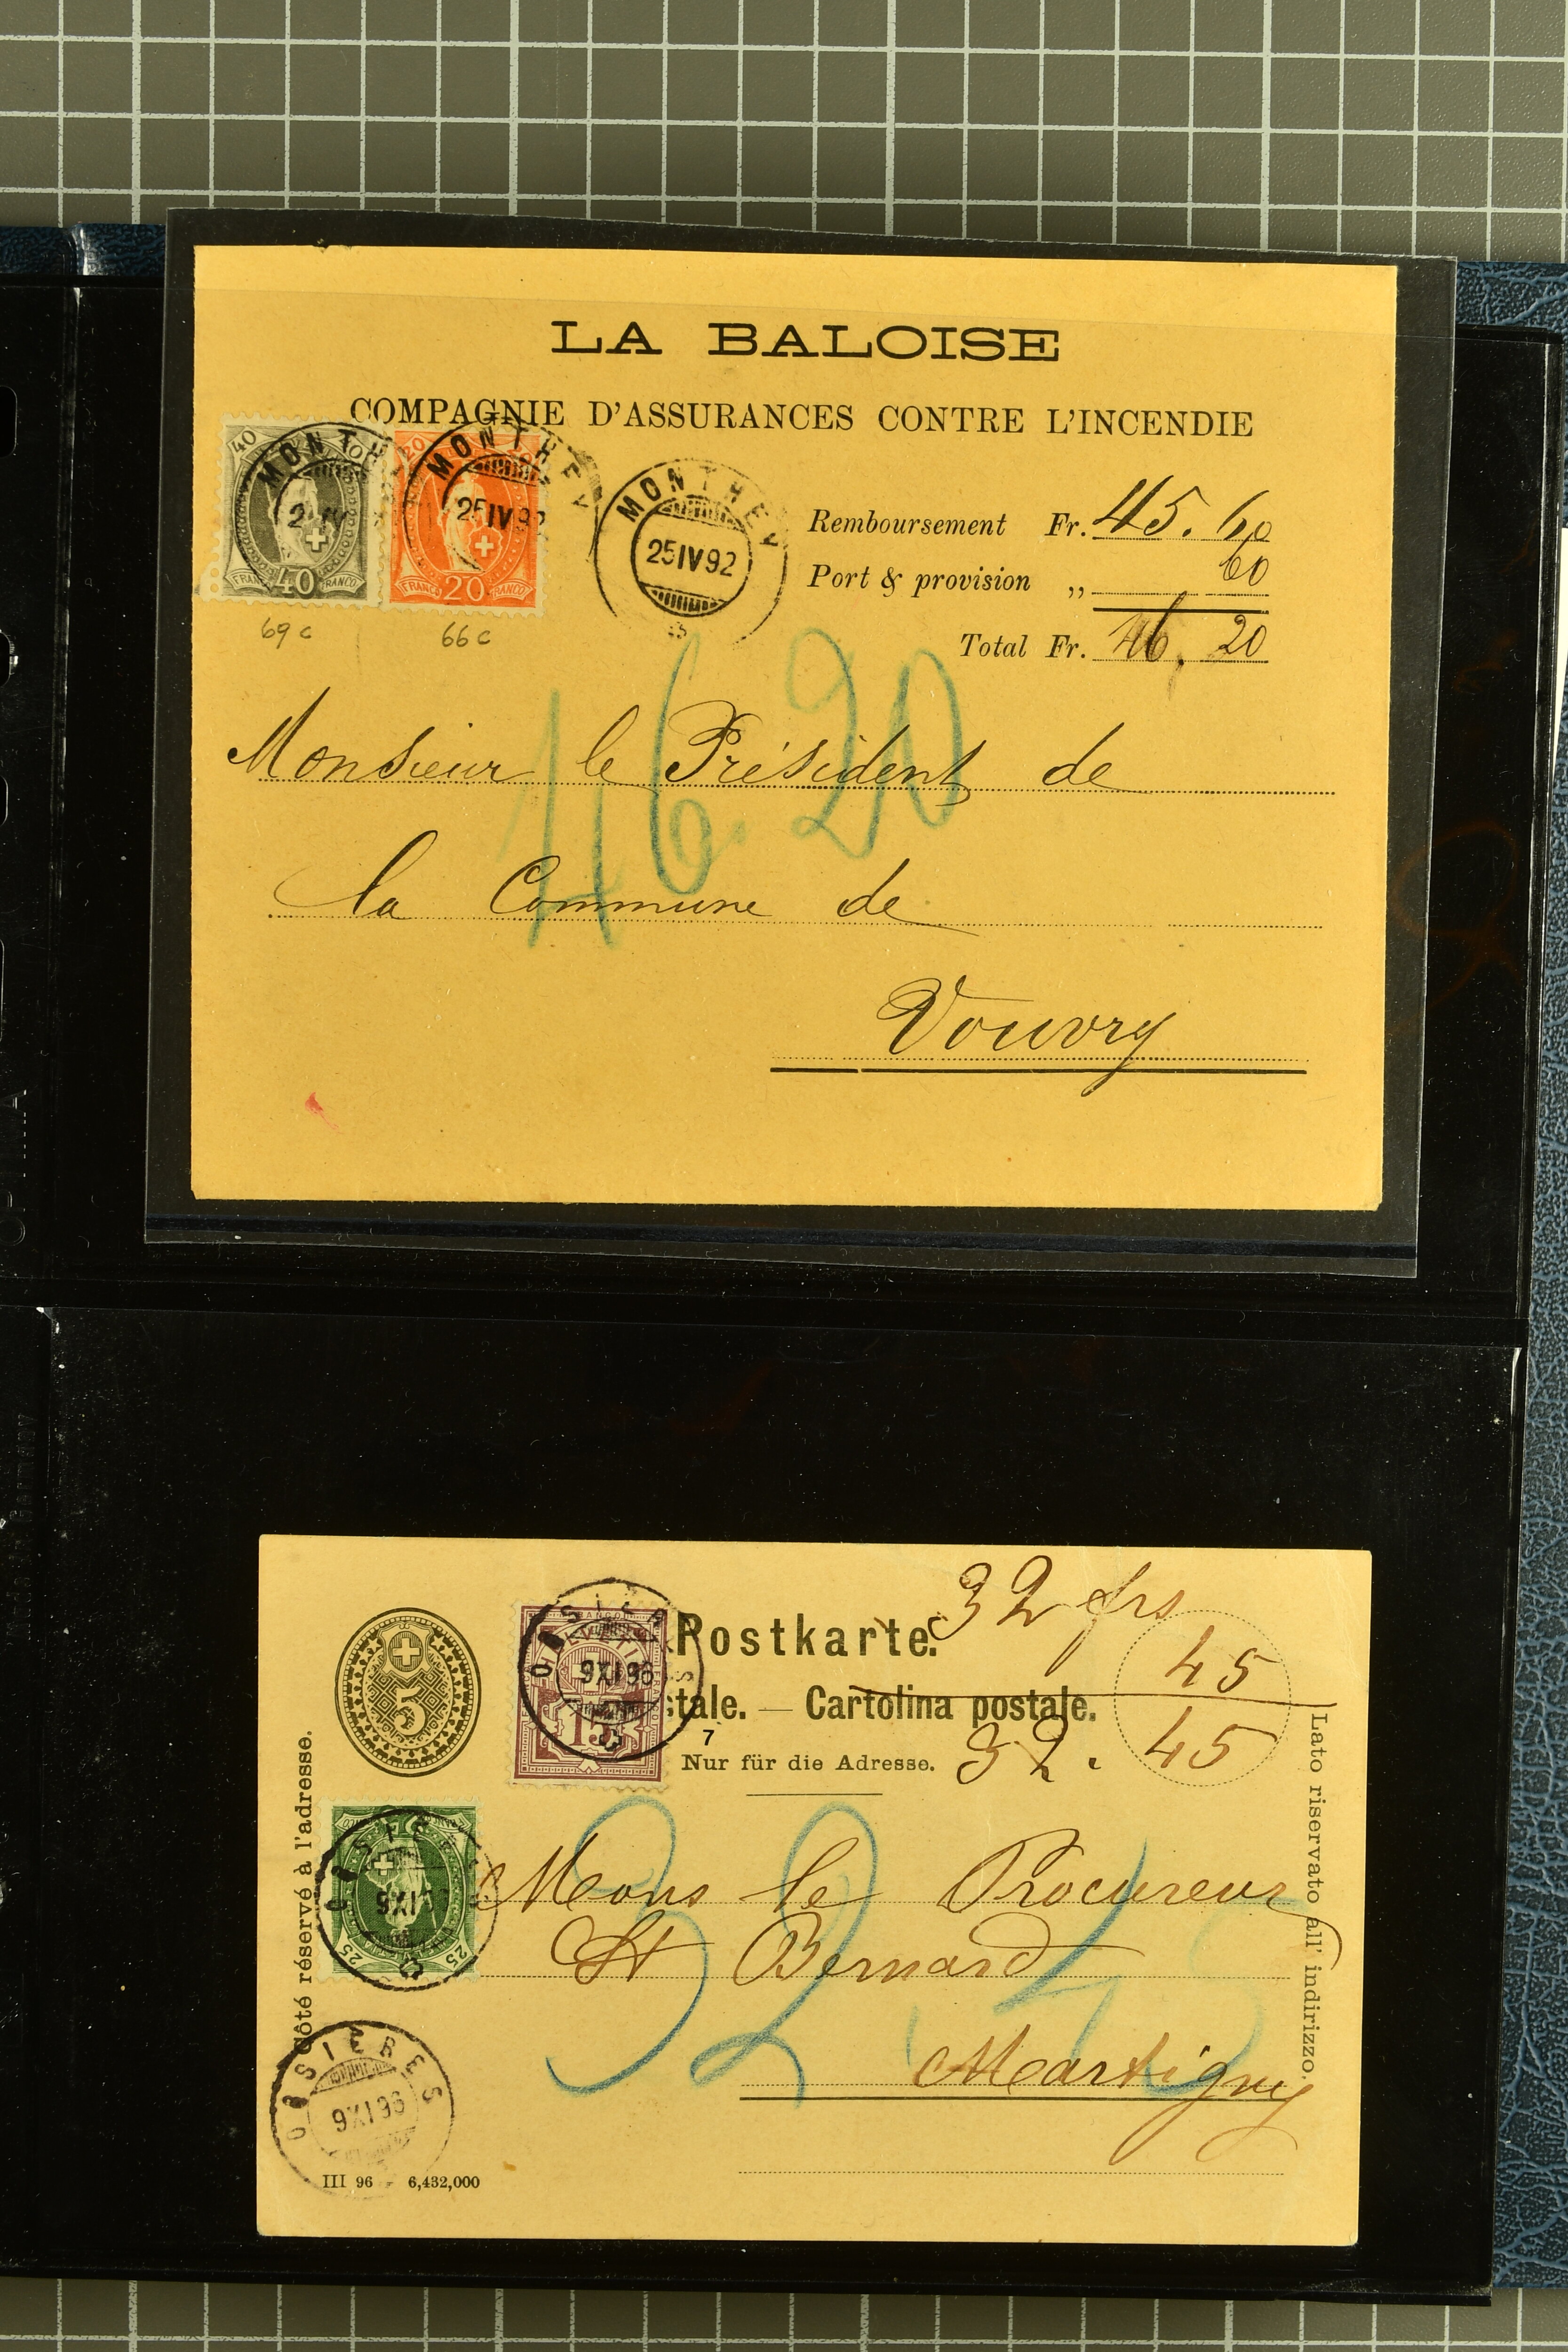 LA BALOISE
COMPAGNIE D'ASSURANCES CONTRE L'INCENDIE
40
20
MONTHEY
25 IV 92
MONTHEY
25 IV 92
FRANCO 40 FRANCO
FRANCO 20 FRANCO
69 c
66 c
Remboursement Fr. 45. 60
Port & provision „ 60
Total Fr. 46. 20
46. 20
Monsieur le Président de
la Commune de
Vouvry
5
15
ORSIÈRES
9 XI 96
Postkarte.
stale. — Cartolina postale.
7
Nur für die Adresse.
32 frs
45
32. 45
Côté réservé à l'adresse.
Lato riservato all' indirizzo.
25
25
32.45
Mons le Procureur
St Bernard
Martigny
ORSIÈRES
9 XI 96
III 96 6,432,000